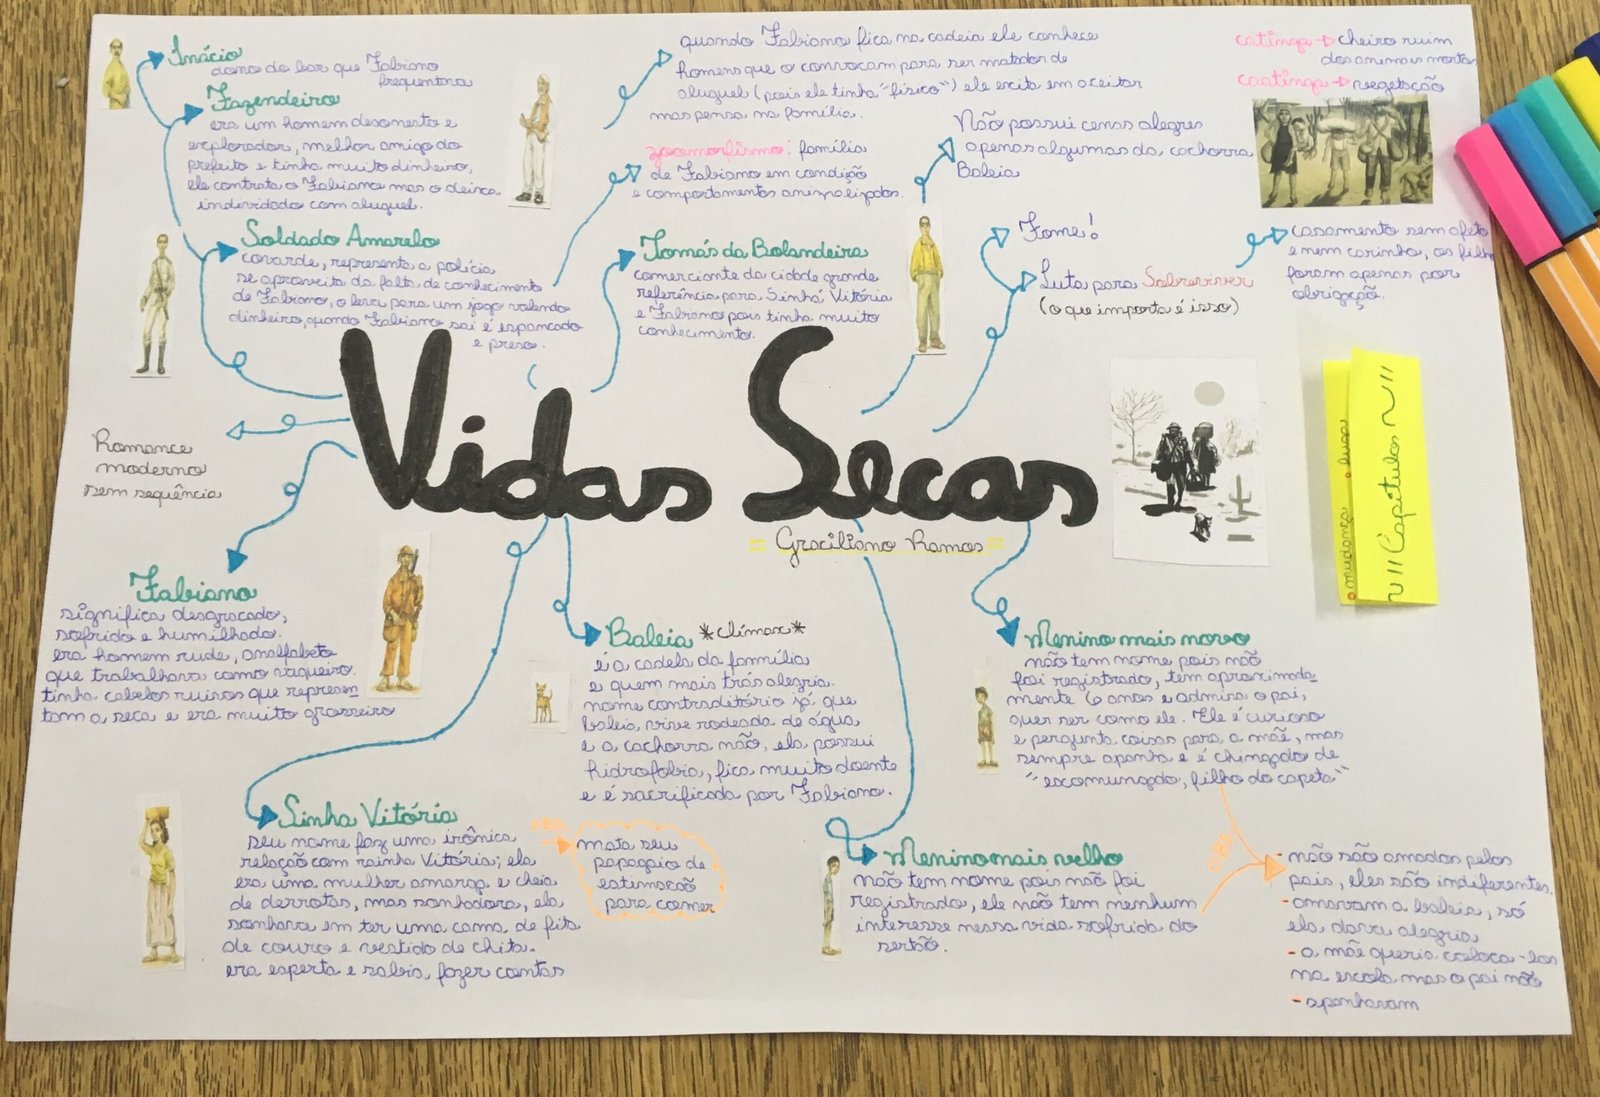 Inácio
dono do bar que Fabiano
frequentava
Fazendeiro
era um homem desonesto e
explorador, melhor amigo do
prefeito e tinha muito dinheiro,
ele contrata o Fabiano mas o deixa
individado com aluguel.
Soldado Amarelo
covarde, representa a polícia
se aproveita da falta de conhecimento
de Fabiano, o leva para um jogo valendo
dinheiro, quando Fabiano sai é espancado
e preso.
quando Fabiano fica na cadeia ele conhece
homens que o convocam para ser matador de
aluguel (pois ele tinha "físico") ele exita em aceitar
mas pensa na família.
zoomorfismo: família
de Fabiano em condição
e comportamentos animalizados.
Tomás da Bolandeira
comerciante da cidade grande
referência para Sinhá Vitória
e Fabiano pois tinha muito
conhecimento.
Não possui cenas alegres
apenas algumas da cachorra
Baleia
Fome!
Luta para Sobreviver
(o que importa é isso)
catinga → cheiro ruim
dos animais mortos
caatinga → vegetação
casamento sem afeto
e nem carinho, os filh
foram apenas por
obrigação.
Vidas Secas
= Graciliano Ramos =
Romance
moderno
sem sequência
mudança
fuga
"Capítulos"
Fabiano
significa desgraçado,
sofrido e humilhado.
era homem rude, analfabeto
que trabalhava como vaqueiro.
tinha cabelos ruivos que represen
tam a seca e era muito grosseiro
Baleia *clímax*
é a cadela da família
e quem mais trás alegria.
nome contraditório já que
baleia vive rodeada de água
e a cachorra não, ela possui
hidrofobia, fica muito doente
e é sacrificada por Fabiano.
Menino mais novo
não tem nome pois não
foi registrado, tem aproximada
mente 6 anos e admira o pai,
quer ser como ele. Ele é curioso
e pergunta coisas para a mãe, mas
sempre apanha e é chingado de
"excomungado, filho do capeta"
Sinha Vitória
seu nome faz uma irônica
relação com rainha Vitória; ela
era uma mulher amarga e cheia
de derrotas, mas sonhadora, ela
sonhava em ter uma cama de fita
de couro e vestido de chita.
era esperta e sabia fazer contas
obs
mata seu
papagaio de
estimação
para comer
Menino mais velho
não tem nome pois não foi
registrado, ele não tem nenhum
interesse nessa vida sofrida do
sertão.
obs
- não são amados pelos
pais, eles são indiferentes.
- amavam a baleia, só
ela dava alegria
- a mãe queria coloca-los
na escola mas o pai não
- apanhavam